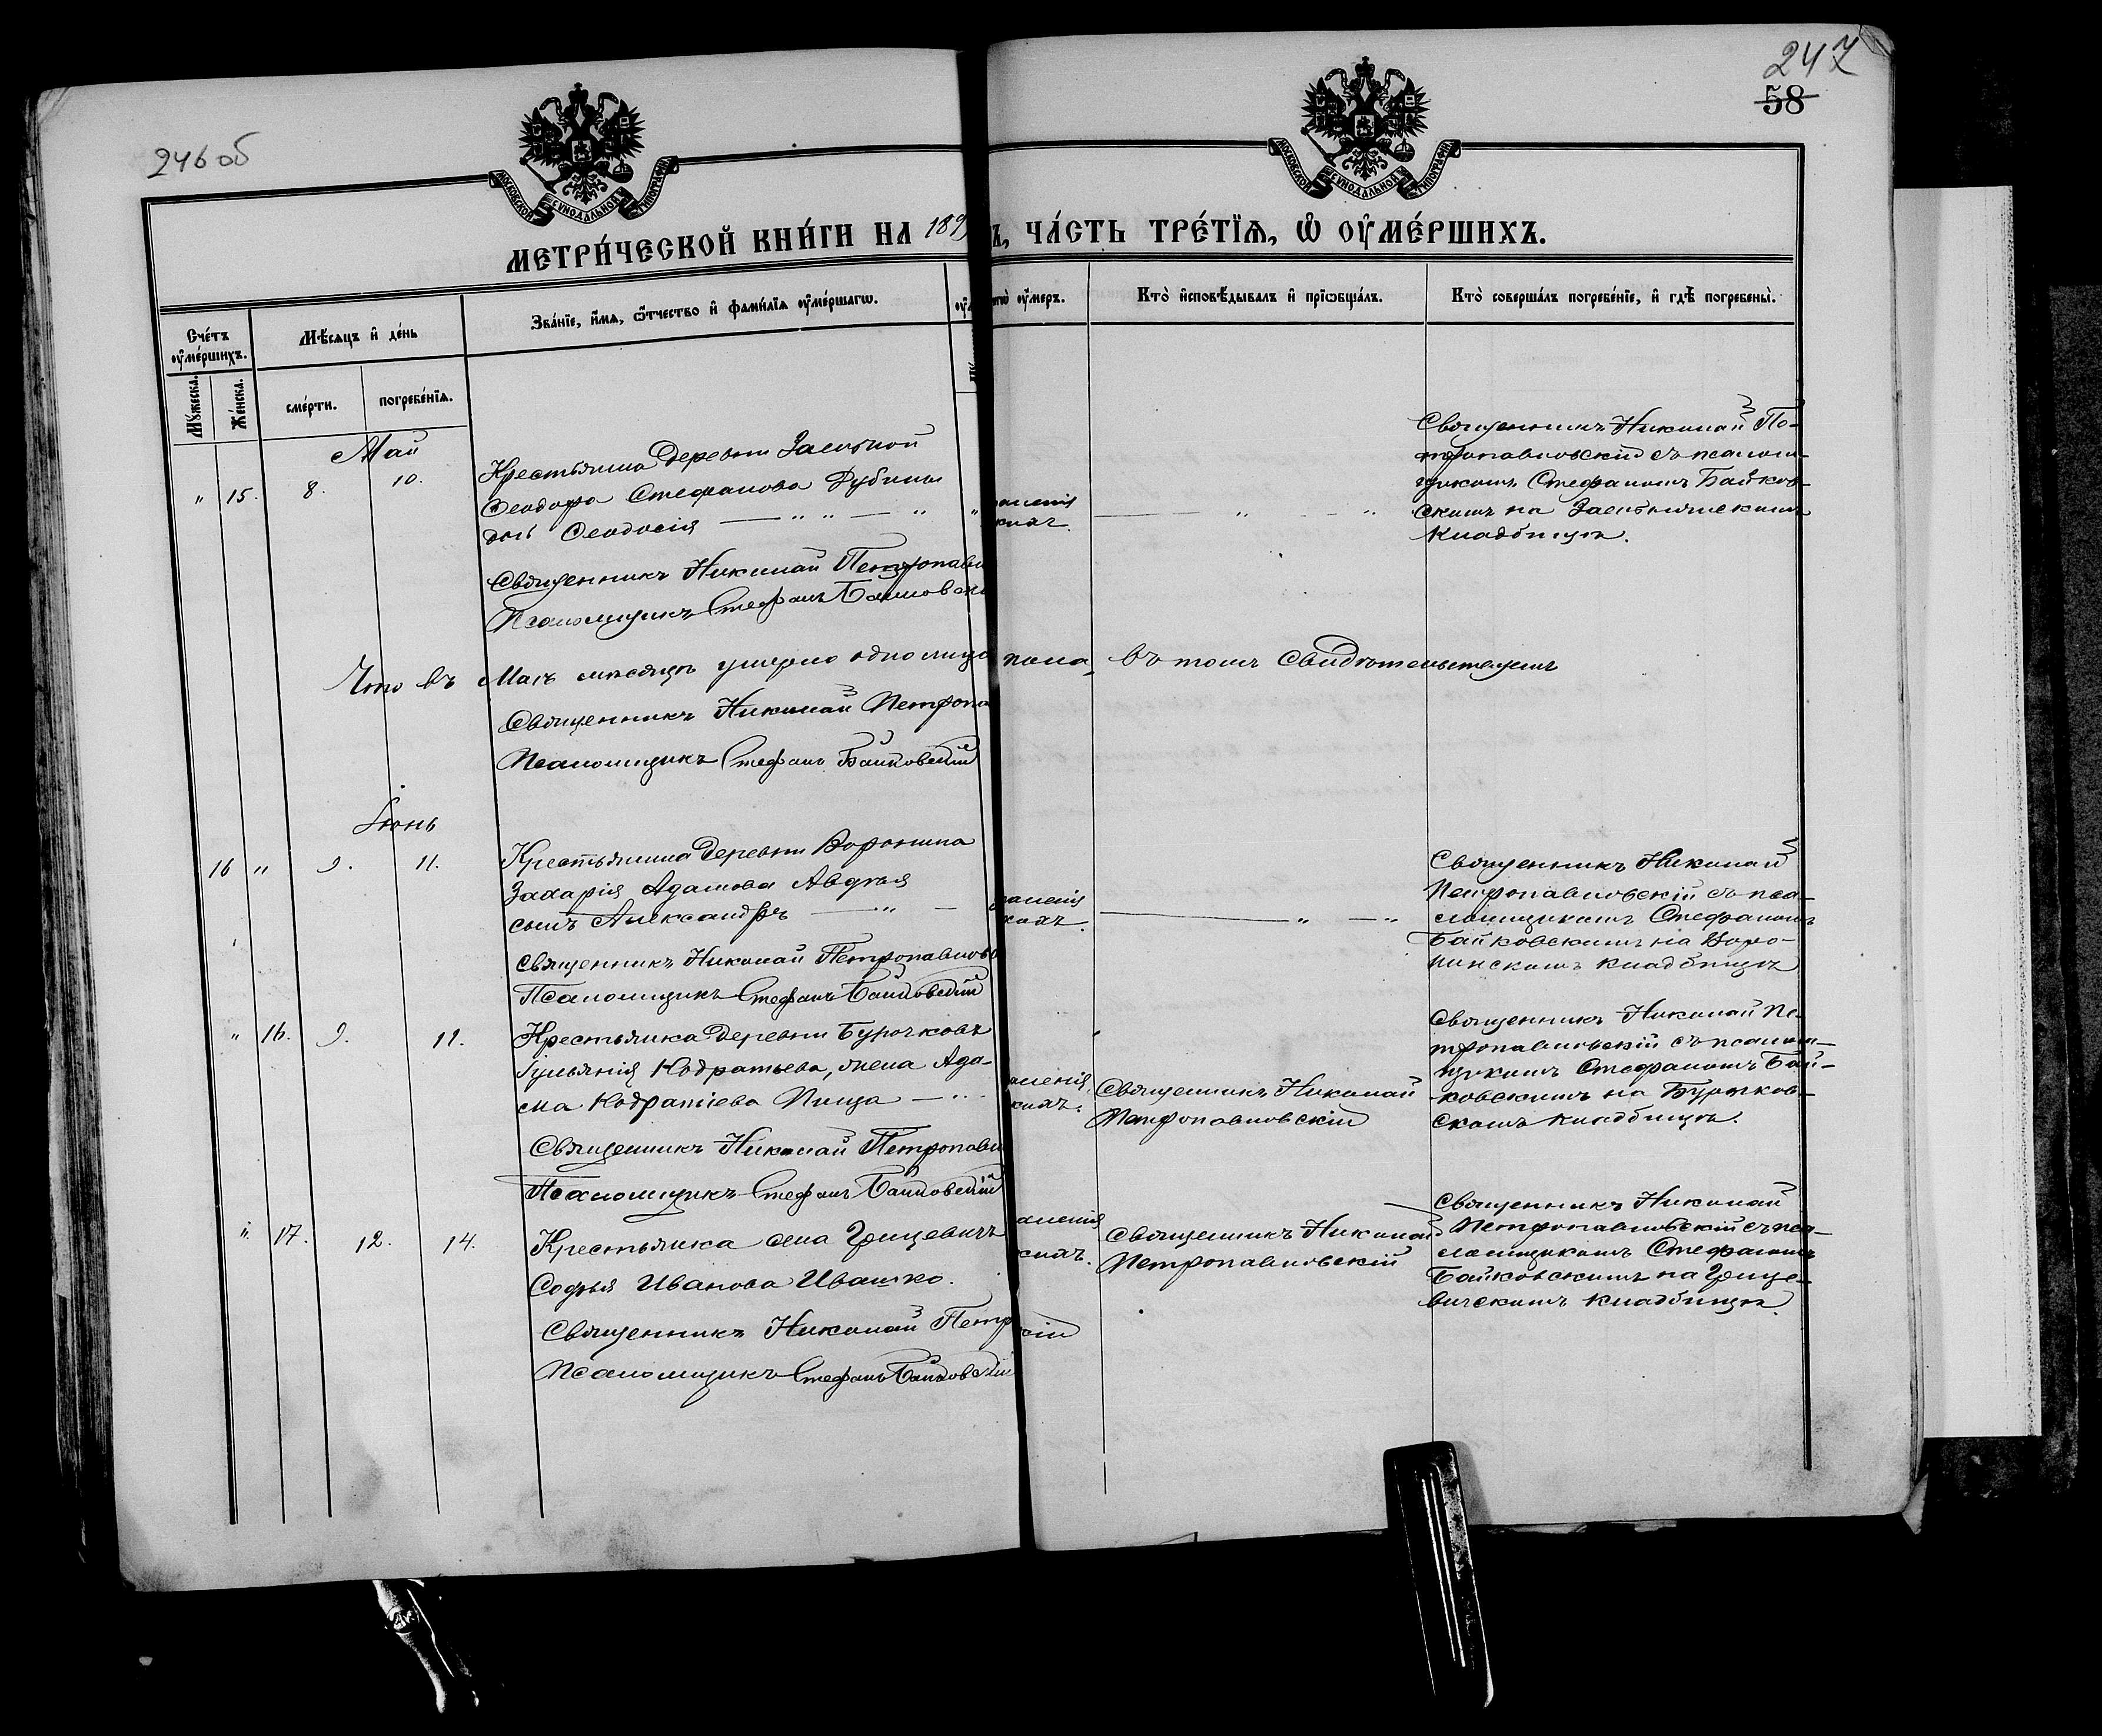 246 об
247
58
МОСКОВСКОЙ СѴНОДАЛЬНОЙ ТИПОГРАФІИ
МОСКОВСКОЙ СѴНОДАЛЬНОЙ ТИПОГРАФІИ
МЕТРИ́ЧЕСКОЙ КНИ́ГИ НА 189
Ъ, ЧА́СТЬ ТРЕ́ТЇѦ, Ѡ҆ ОУ҆МЕ́РШИХЪ.
Сче́тъ оу҆ме́ршихъ.
Мѣ́сяцъ и҆ де́нь
Зва́нїе, и҆́мѧ, ѻ҆́тчество и҆ фами́лїѧ оу҆ме́ршагѡ.
оу҆́меръ.
Кто̀ и҆сповѣ́дывалъ и҆ прїѡбща́лъ.
Кто̀ соверша́лъ погребе́нїе, и҆ гдѣ̀ погребены̀.
Мꙋ́жеска.
Же́нска.
сме́рти.
погребе́нїѧ.
Май
" 15. 8. 10.
Крестьянина деревни Засѣтной
Ѳеодора Стефанова Рубины
дочь Ѳеодосія — " " — "
Священникъ Николай Петропавл
Псаломщикъ Стефанъ Байковскі
— " — "
Священникъ Николай Пе-
тропавловскій съ псалом-
щикомъ Стефаномъ Байков-
скимъ на
Кладбищѣ.
Что въ Маѣ мѣсяцѣ умерло одно лице
пола, въ томъ свидѣтельствуемъ
Священникъ Николай Петропа
Псаломщикъ Стефанъ Байковскій
Іюнь
16 " 9. 11.
Крестьянина деревни Воронина
Захарія Адамова Авдѣя
сынъ Александръ — " —
Священникъ Николай Петропавловс
Псаломщикъ Стефанъ Байковскій
— " — "
Священникъ Николай
Петропавловскій съ пса-
ломщикомъ Стефаномъ
Байковскимъ на Воро-
нинскомъ кладбищѣ
" 16. 9. 11.
Крестьянка деревни Бурочковъ
Іульянія Кодратьева, жена Ада-
ма Кодратіева Пица — "
Священникъ Николай Петропавл
Псаломщикъ Стефанъ Байковскій
Священникъ Николай
Петропавловскій
Священникъ Николай Пе-
тропавловскій съ псалом-
щикомъ Стефаномъ Бай-
ковскимъ на Бурочков-
скомъ кладбищѣ.
" 17. 12. 14.
Крестьянка села Грицевичъ
Софья Иванова Ивашко.
Священникъ Николай Петр
скій
Псаломщикъ Стефанъ Байковскій
Священникъ Николай
Петропавловскій
Священникъ Николай
Петропавловскій съ пса-
ломщикомъ Стефаномъ
Байковскимъ на Грице-
вичскомъ кладбищѣ.